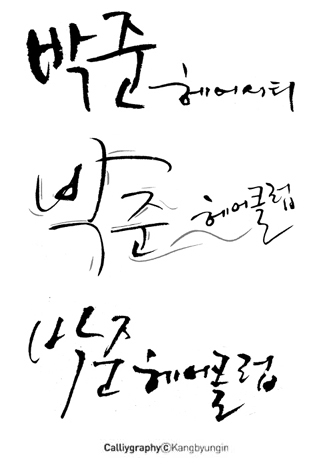 박준 헤어시티
박준 헤어클럽
박준 헤어클럽
CalliygraphyⓒKangbyungin